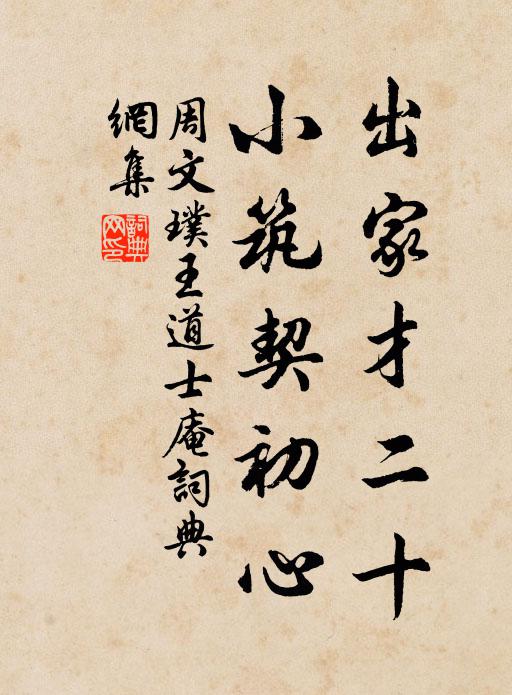 出家才二十
小筑契初心
周文璞王道士庵詞典
網集
詞典网印